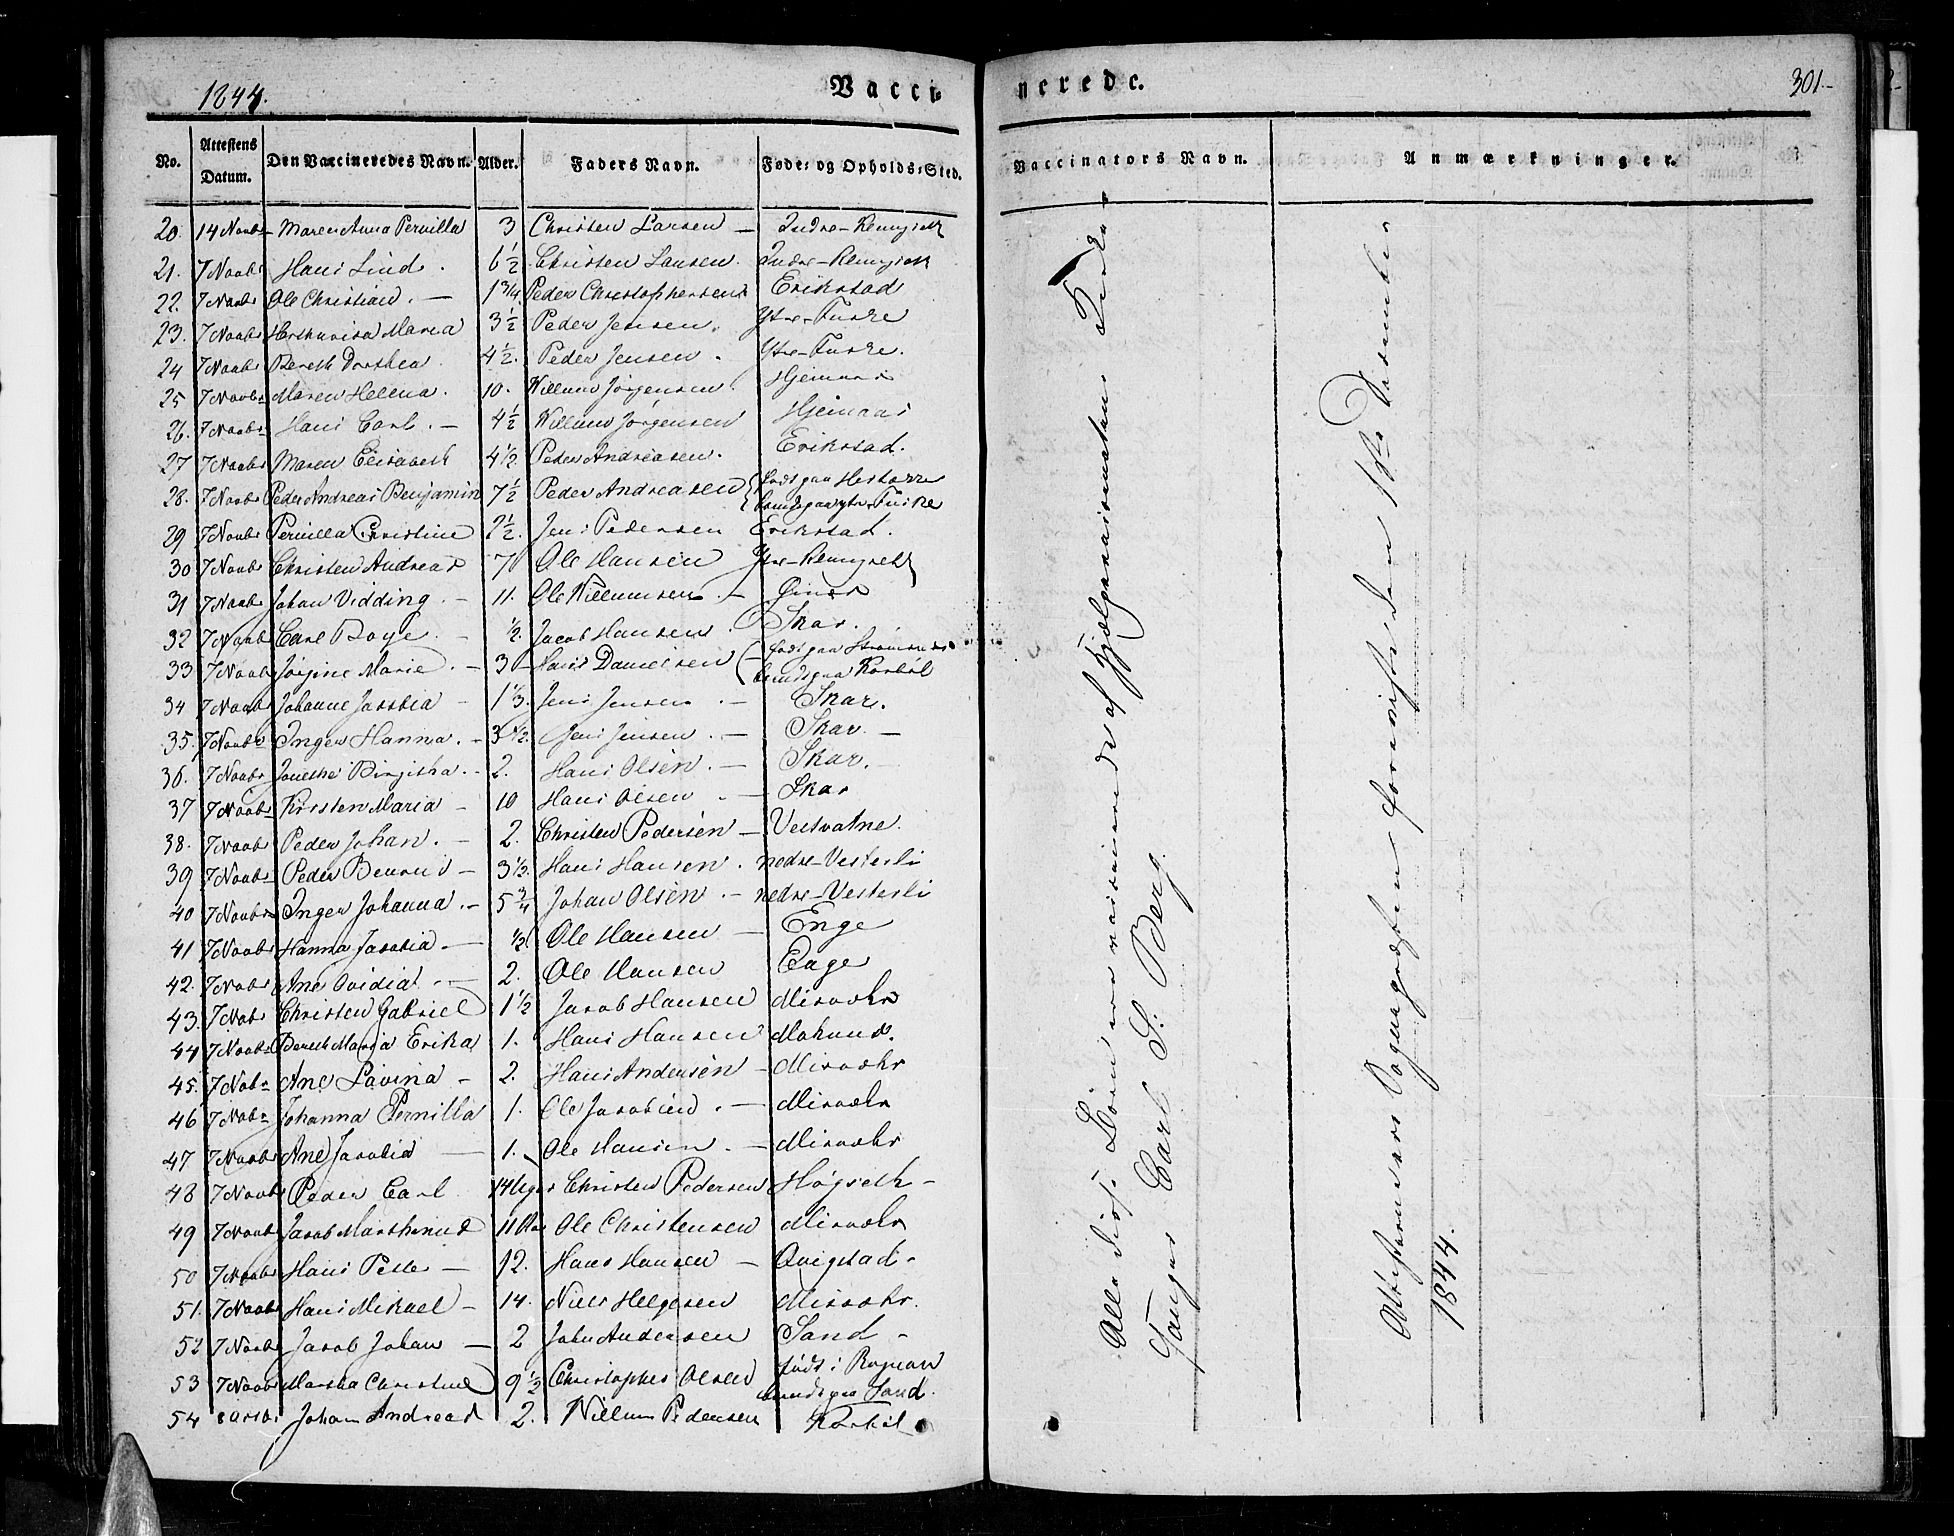 1844.
Vacci-
nerede.
301.-
No. Attestens Datum. Den Vaccineredes Navn. Alder. Faders Navn. Føde- og Opholds-Sted.
Vaccinators Navn. Anmærkninger.
20. 14 Novbr Maren Anna Pernilla 3 Christen Larsen — Indre-
21. 7 Novbr Hans Lind . 6 1/2 Christen Larsen. Indre-
22. 7 Novbr Ole Christian. — 1 3/4 Peder Christophersen Erikstad
23. 7 Novbr Maria 3 1/2 Peder Jensen. Ytre-Fuske
24 7 Novbr Bereth Dorthea 4 1/2. Peder Jensen. Ytre-Fuske.
25 7 Novbr Maren Helena. 10. Willum Jørgensen.
26. 7 Novbr Hans Carl. — 4 1/2 Willum Jørgensen Hjemaas
27 7 Novbr Maren Elisabeth 4 1/2. Peder Andreasen. Erikstad.
28. 7 Novbr Peder Andreas Benjamin 7 1/2 Peder Andreasen født paa
boende paa ytre-Fuske
29 7 Novbr Pernilla Christine 2 1/2. Jens Pedersen Erikstad.
30 7 Novbr Christen Andreas 7 Ole Hansen Ytre-
31 7 Novbr Johan Vidding. — 11. Ole Willumsen. —
32 7 Novbr Carl Boye. — 1/2. Jacob Hansen. Skar.
33. 7 Novbr Jørgine Marie. — 3 — Hans Danielsen født paa
boende paa
34 7 Novbr Johanne Jacobia — 1 1/3. Jens Jensen. — Skar.
35. 7 Novbr Inger Hanna. — 3 1/2. Jens Jensen. — Skar. —
36. 7 Novbr Birgitha. — 2. Hans Olsen. — Skar.
37 7 Novbr Kirsten Maria — 10 Hans Olsen. — Skar
38. 7 Novbr Peder Johan. — 2. Christen Pedersen — Vestvatne.
39 7 Novbr Peder — 3 1/3. Hans Hansen. nedre-Vesterli
40 7 Novbr Inger Johanna. — 5 3/4 Johan Olsen. — nedre-Vesterli
41 7 Novbr Hanna Jacobia. — 1/2 Ole Hansen — Enge
42. 7 Novbr Ane Ovidia. — 2. Ole Hansen Enge
43. 7 Nobr Christen Gabriel 1 1/2 Jacob Hansen Misvæhr
44 7 Novbr Bereth Maria Erika 1. Hans Hansen
45. 7 Nobr Ane Lavina — 2. Hans Andersen — Misvæhr
46 7 Nobr Johanna Pernilla 1. Ole Jacobsen. — Misvæhr
47 7 Novbr Ane Jacobia — 1. Ole Hansen. — Misvæhr
48 7 Novbr Peder Carl 14 Uger Christen Pedersen Høgseth —
49 7 Novbr Jacob 11 Ole Christensen Misvæhr
50 7 Novbr Hans — 12. Hans Hansen — Qvigstad.
51. 7 Novbr Hans Mikael — 14. Niels Helgesen Misvæhr.
52 7 Novbr Jacob Johan — 2 John Andersen Sand —
53 7 Novbr Martha Christine 9 1/2 Christopher Olsen født i Rognan
boende paa Sand.
54 Johan Andreas 2. Willum Pedersen
Alle disse Børn ere vaccinerede af Hjælpevaccinateur
Carl S. Berg.
Attesternes foranviste den 18de December
1844.